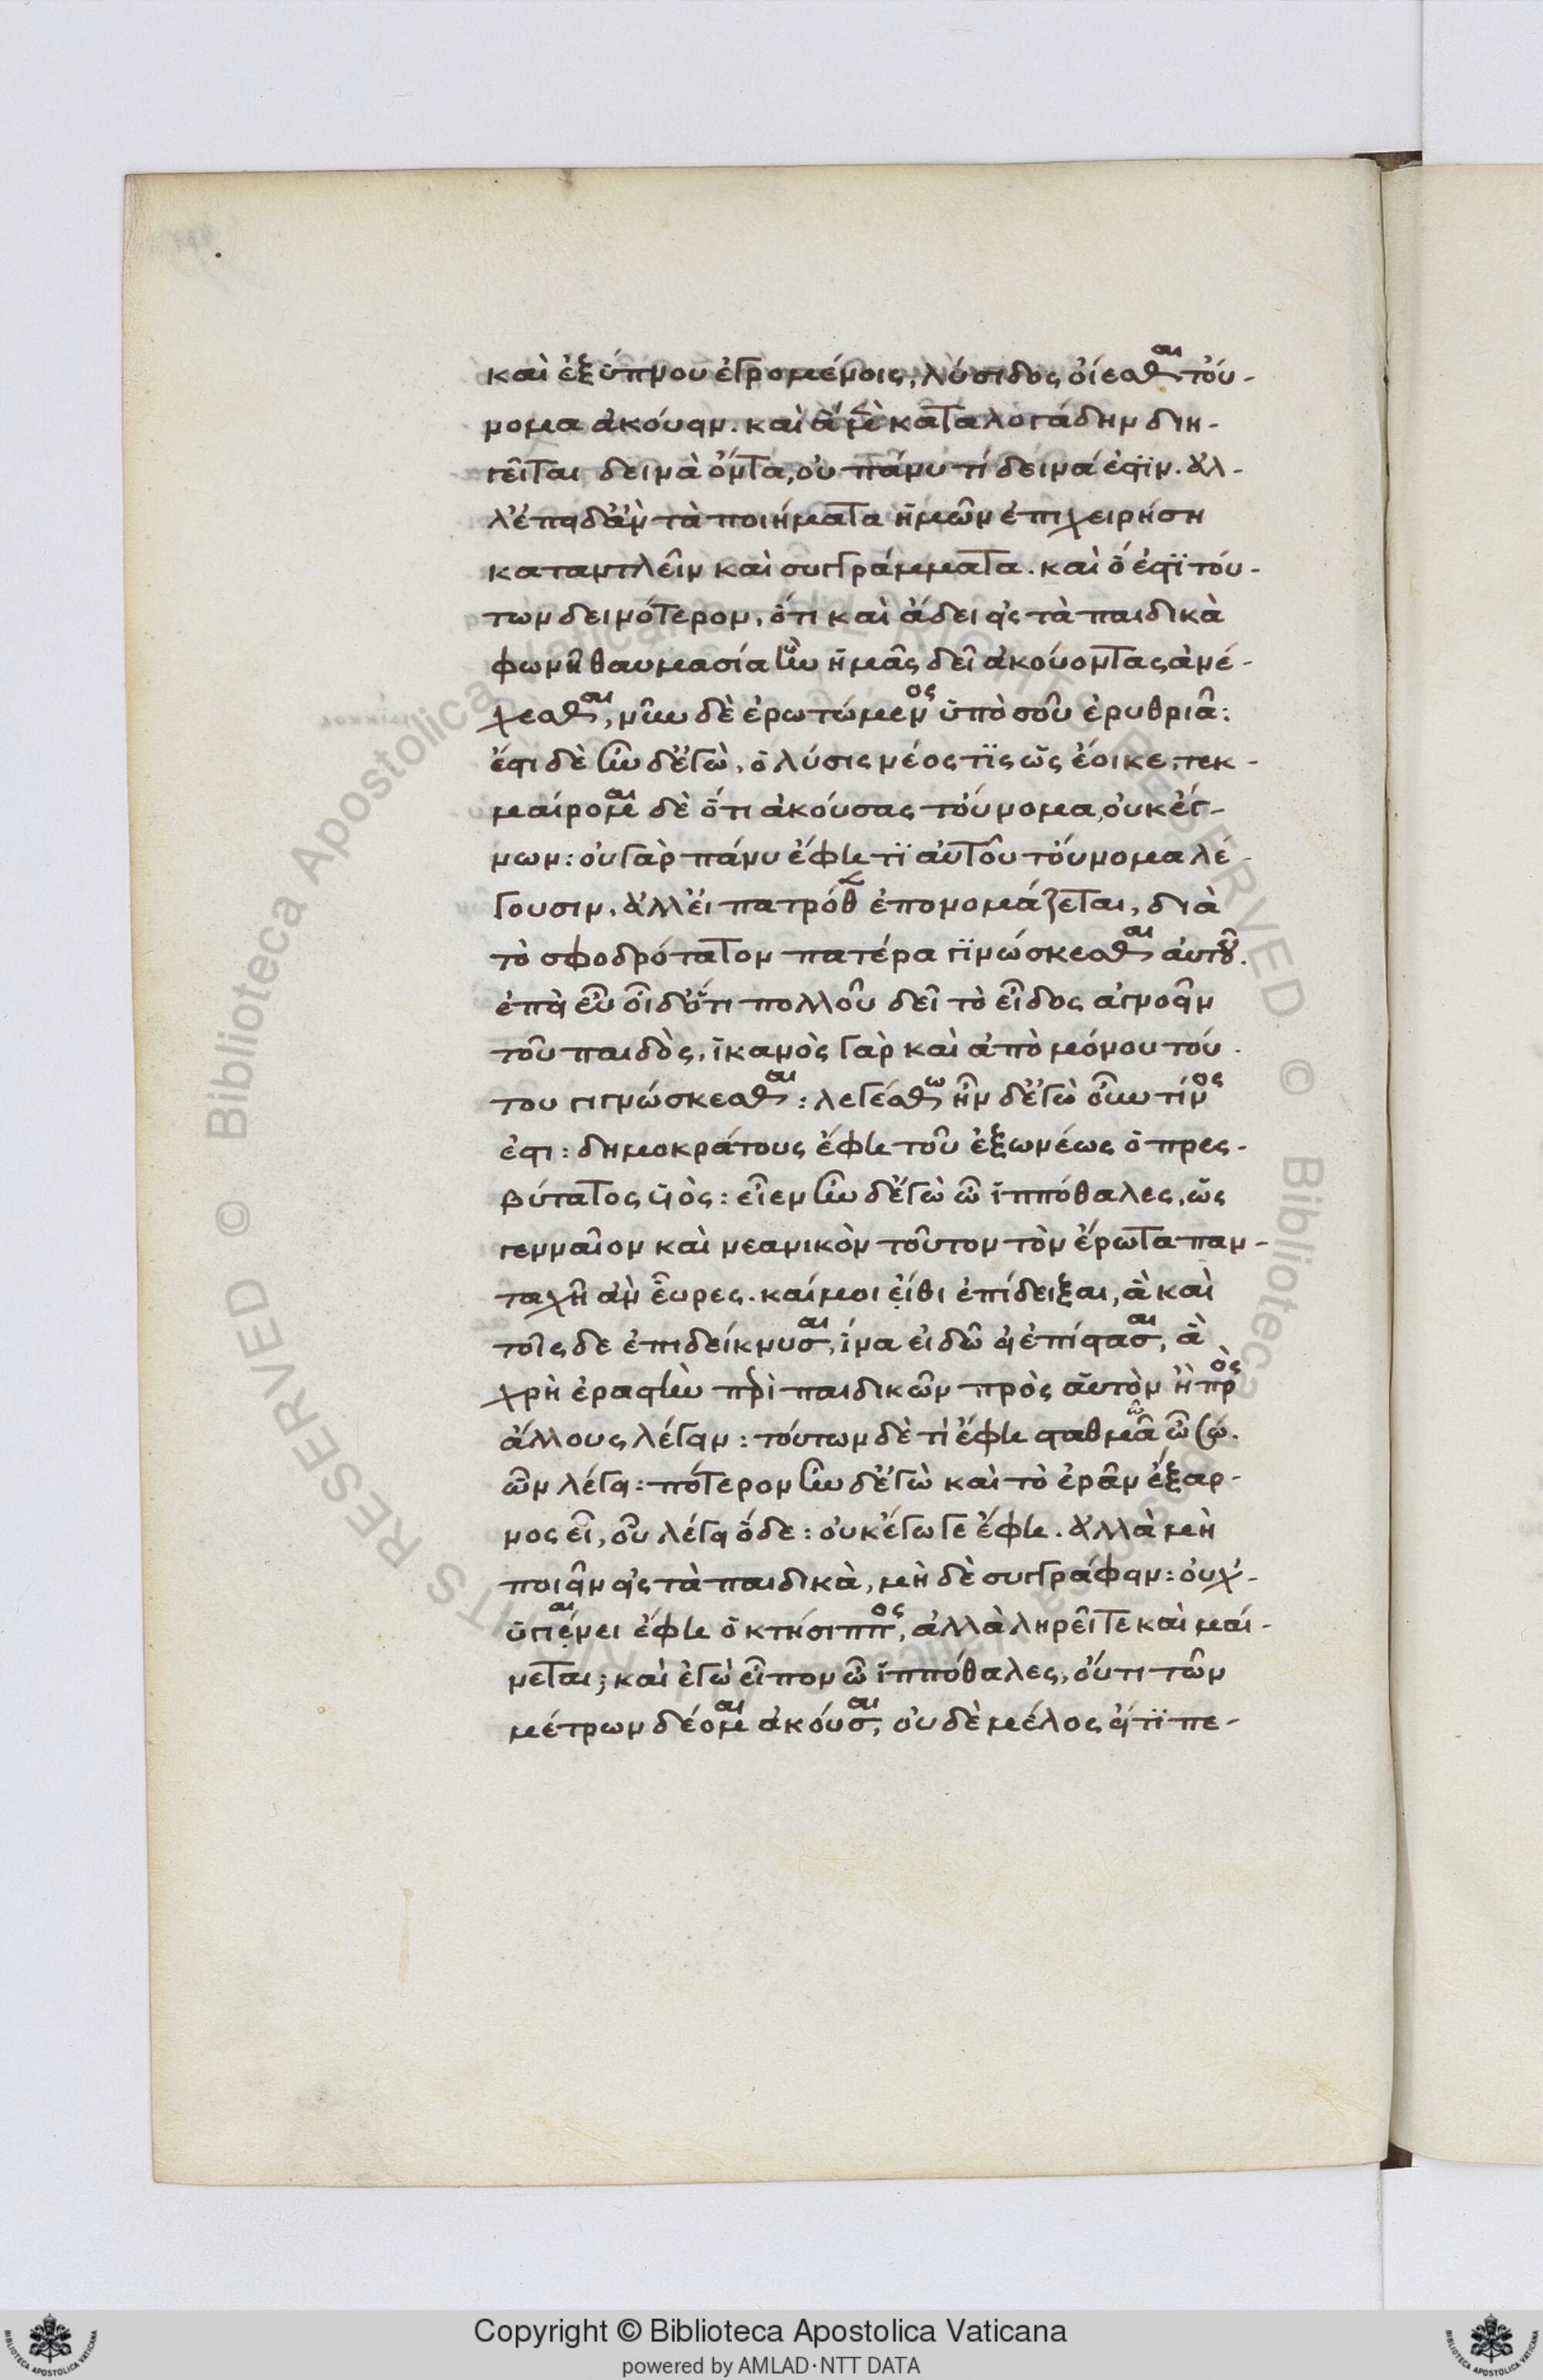 καὶ ἐξ ὕπνου ἐγρομένοις, λύσιδος οἴεσθαι τοὔ-
νομα ἀκούειν. καὶ ἃ μὲν καταλογάδην διη-
γεῖται δεινὰ ὄντα, οὐ πάνυ τί δεινά ἐστϊν. ἀλ-
λ' ἐπειδὰν τὰ ποιήματα ἡμῶν ἐπιχειρήση
καταντλεῖν καὶ συγγράμματα. καὶ ὅ ἐστϊ τού-
των δεινότερον, ὅτι καὶ ἄδει εἰς τὰ παιδικὰ
φωνῆ θαυμασία ἣν ἡμᾶς δεῖ ἀκούοντας ἀνέ-
χεσθαι, νῦν δὲ ἐρωτώμενος ὑπὸ σοῦ ἐρυθριᾶ:
ἔστι δὲ ἦν δ' ἐγὼ, ὁ λύσις νέος τϊς ὡς ἔοικε, τεκ-
μαίρομαι δὲ ὅτι ἀκούσας τοὔνομα, οὐκ ἔγ-
νων: οὐ γὰρ πάνυ ἔφη τϊ αὐτοῦ τοὔνομα λέ-
γουσιν, ἀλλ' ἔτι πατρόθεν ἐπονομάζεται, διὰ
τὸ σφοδρότατον πατέρα γϊνώσκεσθαι αὐτοῦ.
ἐπεὶ εὖ οἶδ' ὅτι πολλοῦ δεῖ τὸ εἶδος ἀγνοεῖν
τοῦ παιδὸς, ἱκανὸς γὰρ καὶ ἀπὸ μόνου τού-
του γιγνώσκεσθαι: λεγέσθω ἦν δ' ἐγὼ οὗν τίνος
ἐστι: δημοκράτους ἔφη τοῦ ἐξωνέως ὁ πρες-
βύτατος υἱὸς: εἶεν ἦν δ' ἐγὼ ὦ ἱππόθαλες, ὡς
γενναῖον καὶ νεανικὸν τοῦτον τὸν ἔρωτα παν-
ταχῆ ἀν εὗρες. καί μοι εἴθι ἐπίδειξαι, ἃ καὶ
τοῖς δε ἐπιδείκνυσαι, ἵνα εἰδῶ εἰ ἐπίστασαι, ἃ
χρὴ ἐραστὴν περὶ παιδικῶν πρὸς αὐτὸν ἢ πρὸς
ἄλλους λέγειν: τούτων δὲ τὶ ἔφη σταθμᾶ ὦ σώ.
ὧν λέγει: πότερον ἦν δ' ἐγὼ καὶ τὸ ἐρᾶν ἔξαρ-
νος εἶ, οὗ λέγει ὅδε: οὐκ ἔγωγε ἔφη. ἀλλὰ μὴ
ποιεῖν εἰς τὰ παιδικὰ, μὴ δὲ συγγράφειν: οὐχ'
ὑγιαίνει ἔφη ὁ κτήσιππος, ἀλλὰ ληρεῖ τε καὶ μαί-
νεται; καὶ ἐγὼ εἶπον ὦ ἱππόθαλες, οὔτι τῶν
μέτρων δέομαι ἀκούσαι, οὐδὲ μέλος εἴ τϊ πε-
Copyright © Biblioteca Apostolica Vaticana
powered by AMLAD·NTT DATA